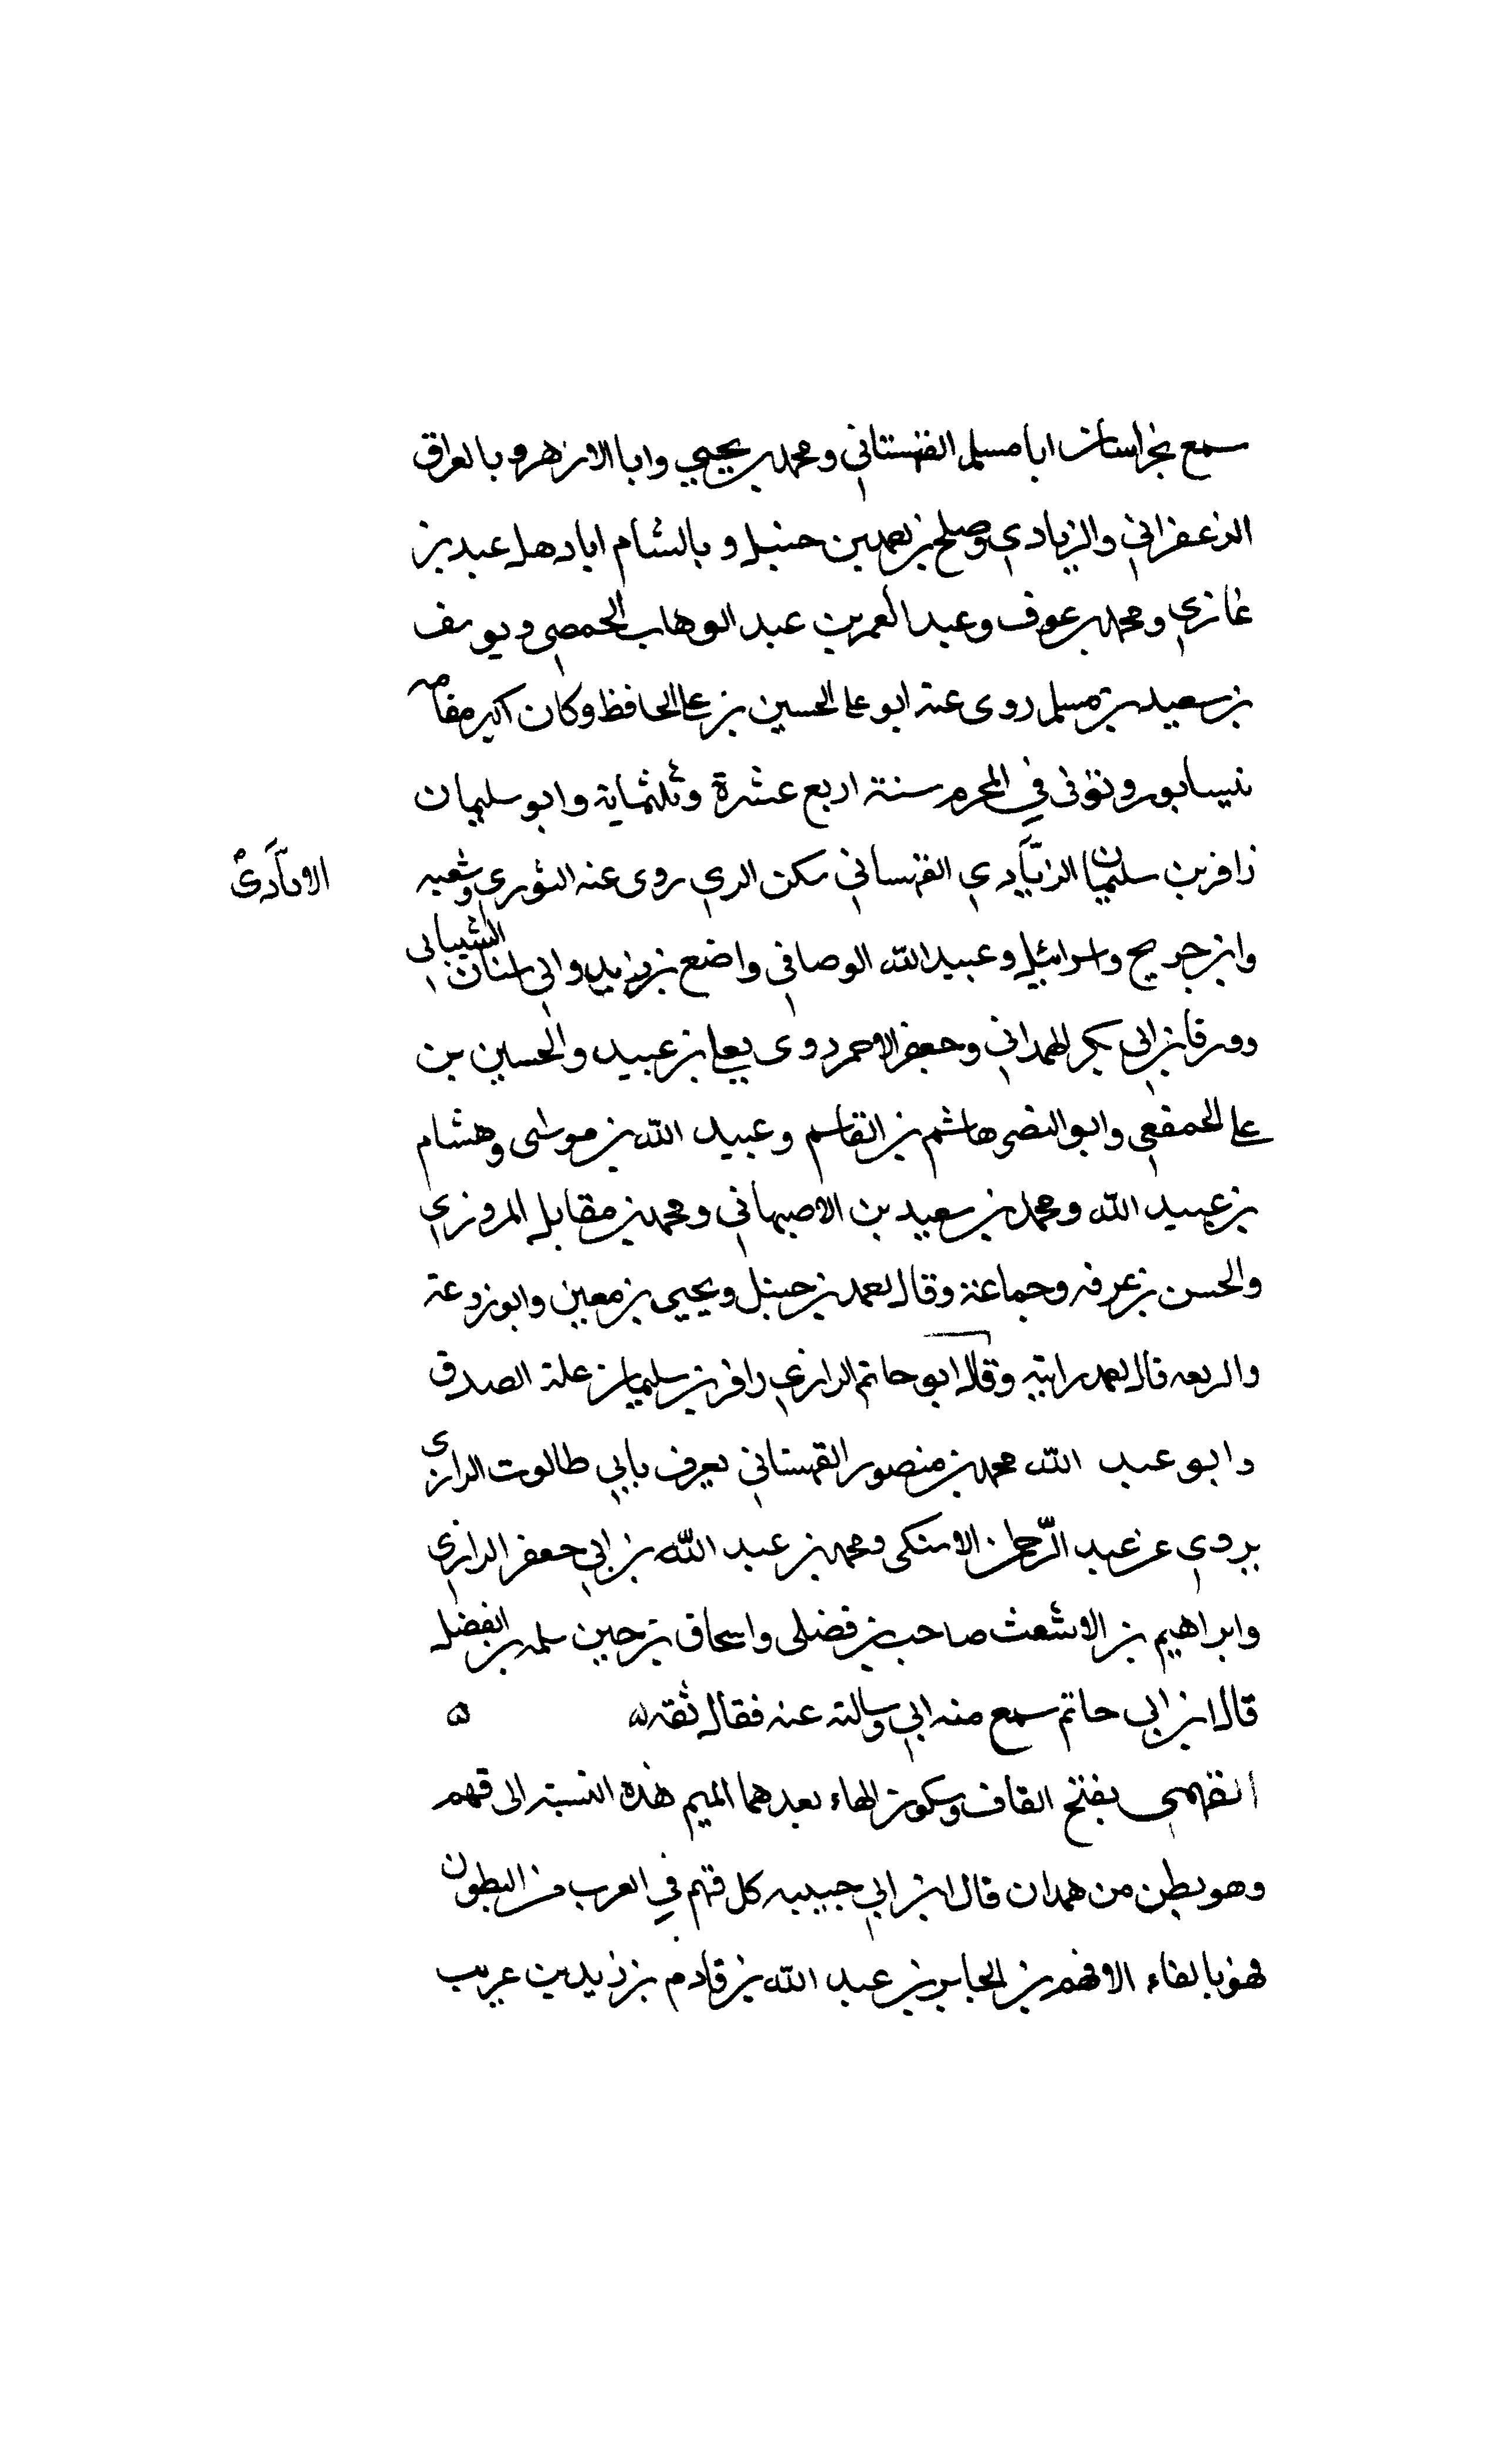 سمع بخراسان ابا مسلم القهستاني ومحمد بن يحيي وابا الازهر وبالعراق
الزعفراني والزيادي وصلح بن احمد بن حنبل وبالشام ابا دهل عبد بن
غازي ومحمد بن عوف وعبد العمر بن عبد الوهاب الحمصي ويوسف
بن سعيد بن مسلم روى عنه ابو علي الحسين بن علي الحافظ وكان اكبر مقامه
نيسابور وتوفى في المحرم سنة اربع عشرة وثلثماية وابو سليمان
زافر بن سليمان الايادي القهستاني سكن الري روى عنه الثوري وشعبه
الايادى
وابن جريج واسرائيل وعبيد الله الوصافي واضع بن يزيد وابي سنان الشيباني
وورقا بن ابي بكر الهمداني وجعفر الاحمر روى يعلي بن عبيد والحسين بن
علي الجعفي وابو النضر هاشم بن القاسم وعبيد الله بن موسى وهشام
بن عبيد الله ومحمد بن سعيد بن الاصبهاني ومحمد بن مقابل المروزي
والحسن بن عرفه وجماعة وقال احمد بن حنبل ويحيي بن معين وابو زرعة
والربعه قال احمد رايته وقال ابو حاتم الرازي زافر بن سليمان علة الصدق
وابو عبد الله محمد بن منصور القهستاني يعرف بابي طالوت الرازى
يروي عن عبد الرحمان الاشكى ومحمد بن عبد الله بن ابي جعفر الرازي
وابراهيم بن الاشعث صاحب بن فضلى واسحاق بن حين سلمه بن الفضل
قال ابن ابي حاتم سمع منه ابي وسالته عنه فقال ثقه ه ه
القهمي بفتح القاف وسكون الهاء بعدهما الميم هذه النسبة الى قهم
وهو بطن من همدان قال ابن ابي حبيبه كل قهم في العرب من البطون
فهو بالفاء الا قهم بن الجابر بن عبد الله بن قادم بن زيد بن عريب